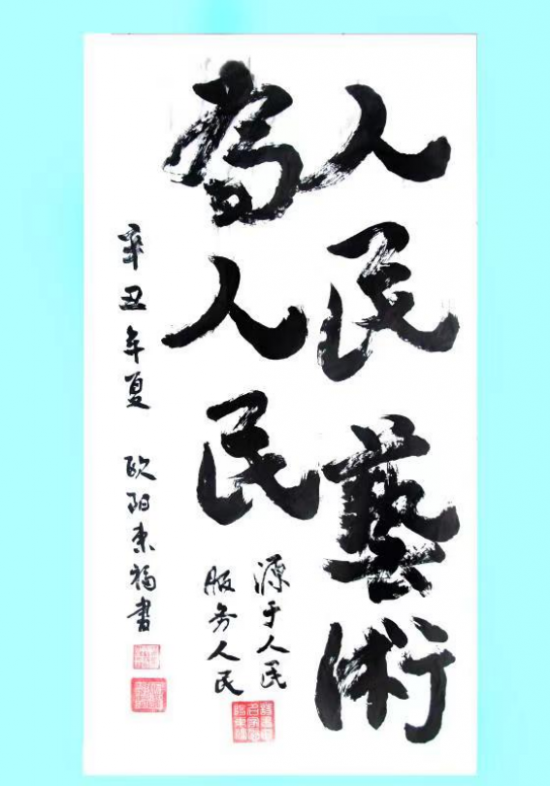 人民藝術
為人民
源于人民
服务人民
辛丑年夏 欧阳东福書